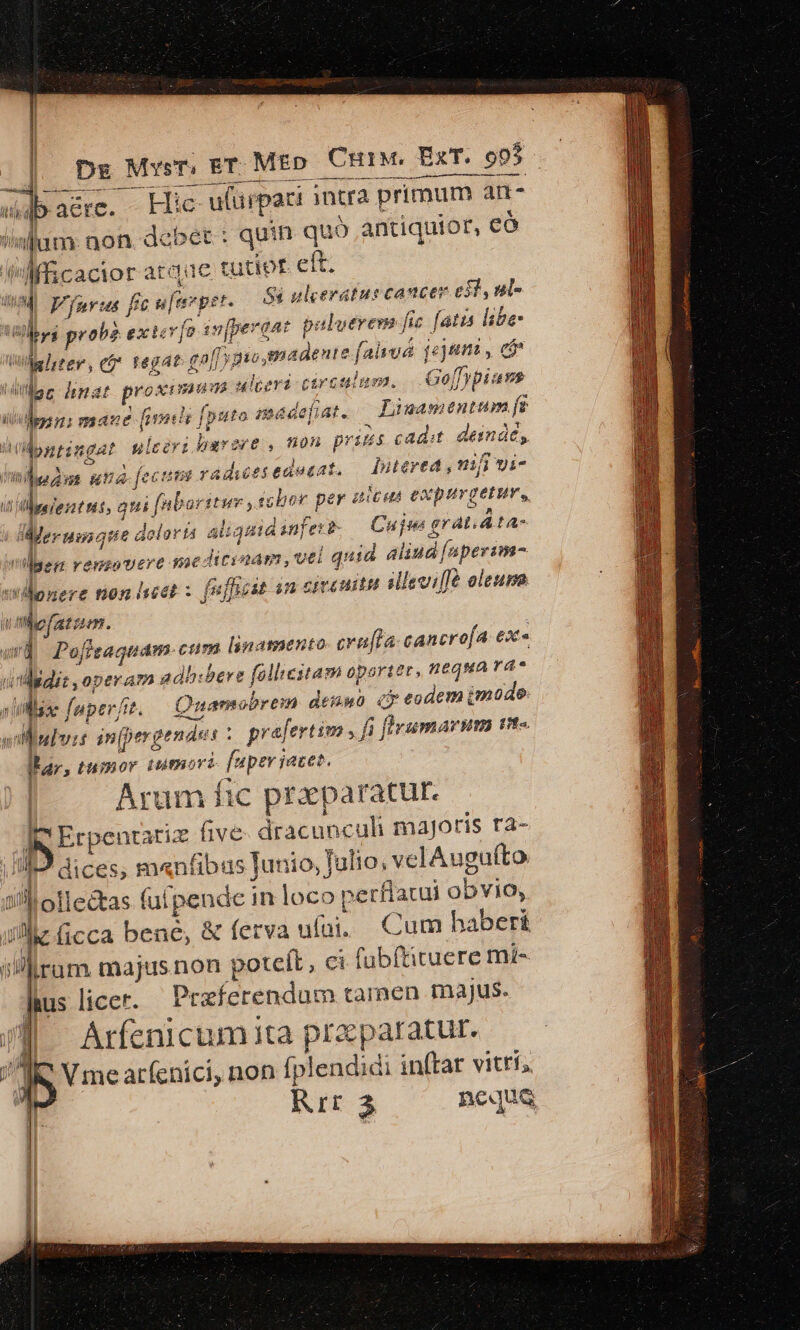 DE MYST. ET MED CHIM. EXT. 993
ab aëre. Hic uſurpari intra primum an-
num non debet: quin quò antiquior, eò
efficacior atque tutior eſt.
Vſurus ſic uſurpet. Si ulceratus cancer eſt, ul-
ceri probè exterſo inſpergat pulverem ſic ſatis libe-
raliter, & tegat goſſypio, madente ſalivâ jejuni, &
hoc linat proximum ulceri circulum. Goſſypium
mane ſimili ſputo madefiat. Linamentum ſi
contingat ulceri hærere, non prius cadit deinde,
quàm unà ſecum radices educat. Interea, niſi vi-
qui ſuboritur, tubor per expurgetur,
plerumque doloris aliquid infert. Cujus gratiâ ta-
men removere medicinam, vel quid aliud ſuperim-
ponere non licet: ſufficit in circuitu illeviſſe oleum
roſatum.
Poſteaquam cum linamento cruſta cancroſa ex-
cidit, operam adhibere ſollicitam oportet, nequa ra-
dix ſuperſit. Quamobrem denuò & eodem modo
pulvis inſpergendus: præſertim, ſi ſtrumarum in-
ſtar, tumor tumori ſuperjacet.
Arum ſic præparatur.
℞ Erpentariæ ſive dracunculi majoris ra-
dices, menſibus Junio, Julio, vel Auguſto
collectas ſuſpende in loco perflatui obvio,
ſicca bene, & ſerva uſui. Cum haberi
Arum majus non poteſt, ei ſubſtituere mi-
nus licet. Præferendum tamen majus.
Arſenicum ita præparatur.
℞ Vme arſenici, non ſplendidi inſtar vitri,
Rrr 3 neque